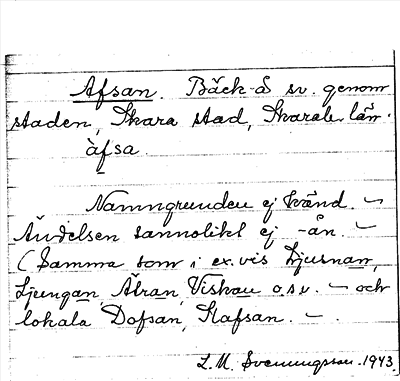 Afsan. Bäck-å sv. genom
staden, Skara stad, Skarab. län.
àfsa.
Namngrunden ej känd. ~
Ändelsen sannolikt ej -ån. ~
(Samma som i ex.vis Ljusnan,
Ljungan, Ätran, Viskan o.s.v. ~ och
lokala Dofsan, Kafsan. ~ .
L. M. Svenungsson. 1943.